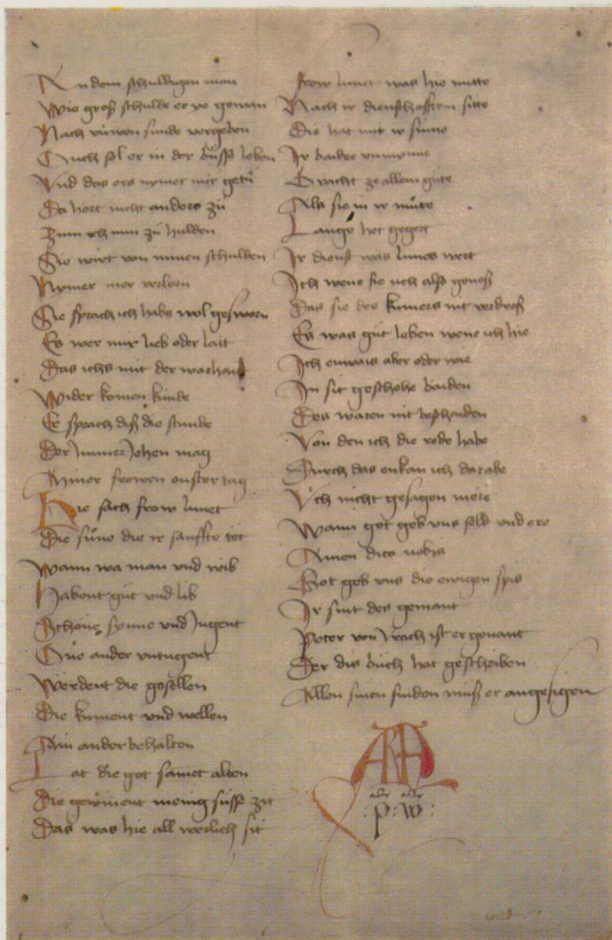 An dem schuldigen man
Wie groß schulde er ye gewan
Nach rüwen sünde vergeben
Ouch sol er in der buͦsse leben
Und das ers nymer mer getuͦ
Da hort nicht anders zuͦ
Kum ich nun zuͦ hulden
Sie wirt von minen schulden
Nymer mer verlorn
Sie sprach ich habs wol gesworn
Es wer mir lieb oder lait
Das ichs mit der warhait
Wider komen künde
Er sprach diß die stunde
Der ich immer jehen mag
Miner frowen oustertag
Hie sach frow lunet
Die suͦne die ir sanffte tet
Wann wa man und wib
Habent guͦt und lib
Schoͤne synne und Jugent
One ander untugent
Werdent die gesellen
Die kument und wellen
Ain ander behalten
Lat die got samet alten
Die gewinent menig süsse zit
Das was hie all werlich sit
frow lunet was hie mitte
Nach ir diensthafftem sitte
Die hat mit ir sinne
Ir baider unmynne
Bracht ze allem guͦte
Als sie in ir muͦte
Lange het gegert
Ir dienst was lunes wert
Ich wene sie och also genoß
Das sie des kumers nit verdroß
Es was guͦt leben wene ich hie
Ich enwais aber oder wie
In sit geschehe baiden
Des waren nit beschaiden
Von den ich die rede habe
Durch das enkan ich dar abe
Uch nicht gesagen mere
Wann got geb uns seld und ere
Amen dico vobis
Got geb uns die ewigen spis
Ir sint des gemant
Peter von Urach ist er genant
Der dis buͦch hat geschriben
Allen sinen finden muͦß er angesigen
: p : w :